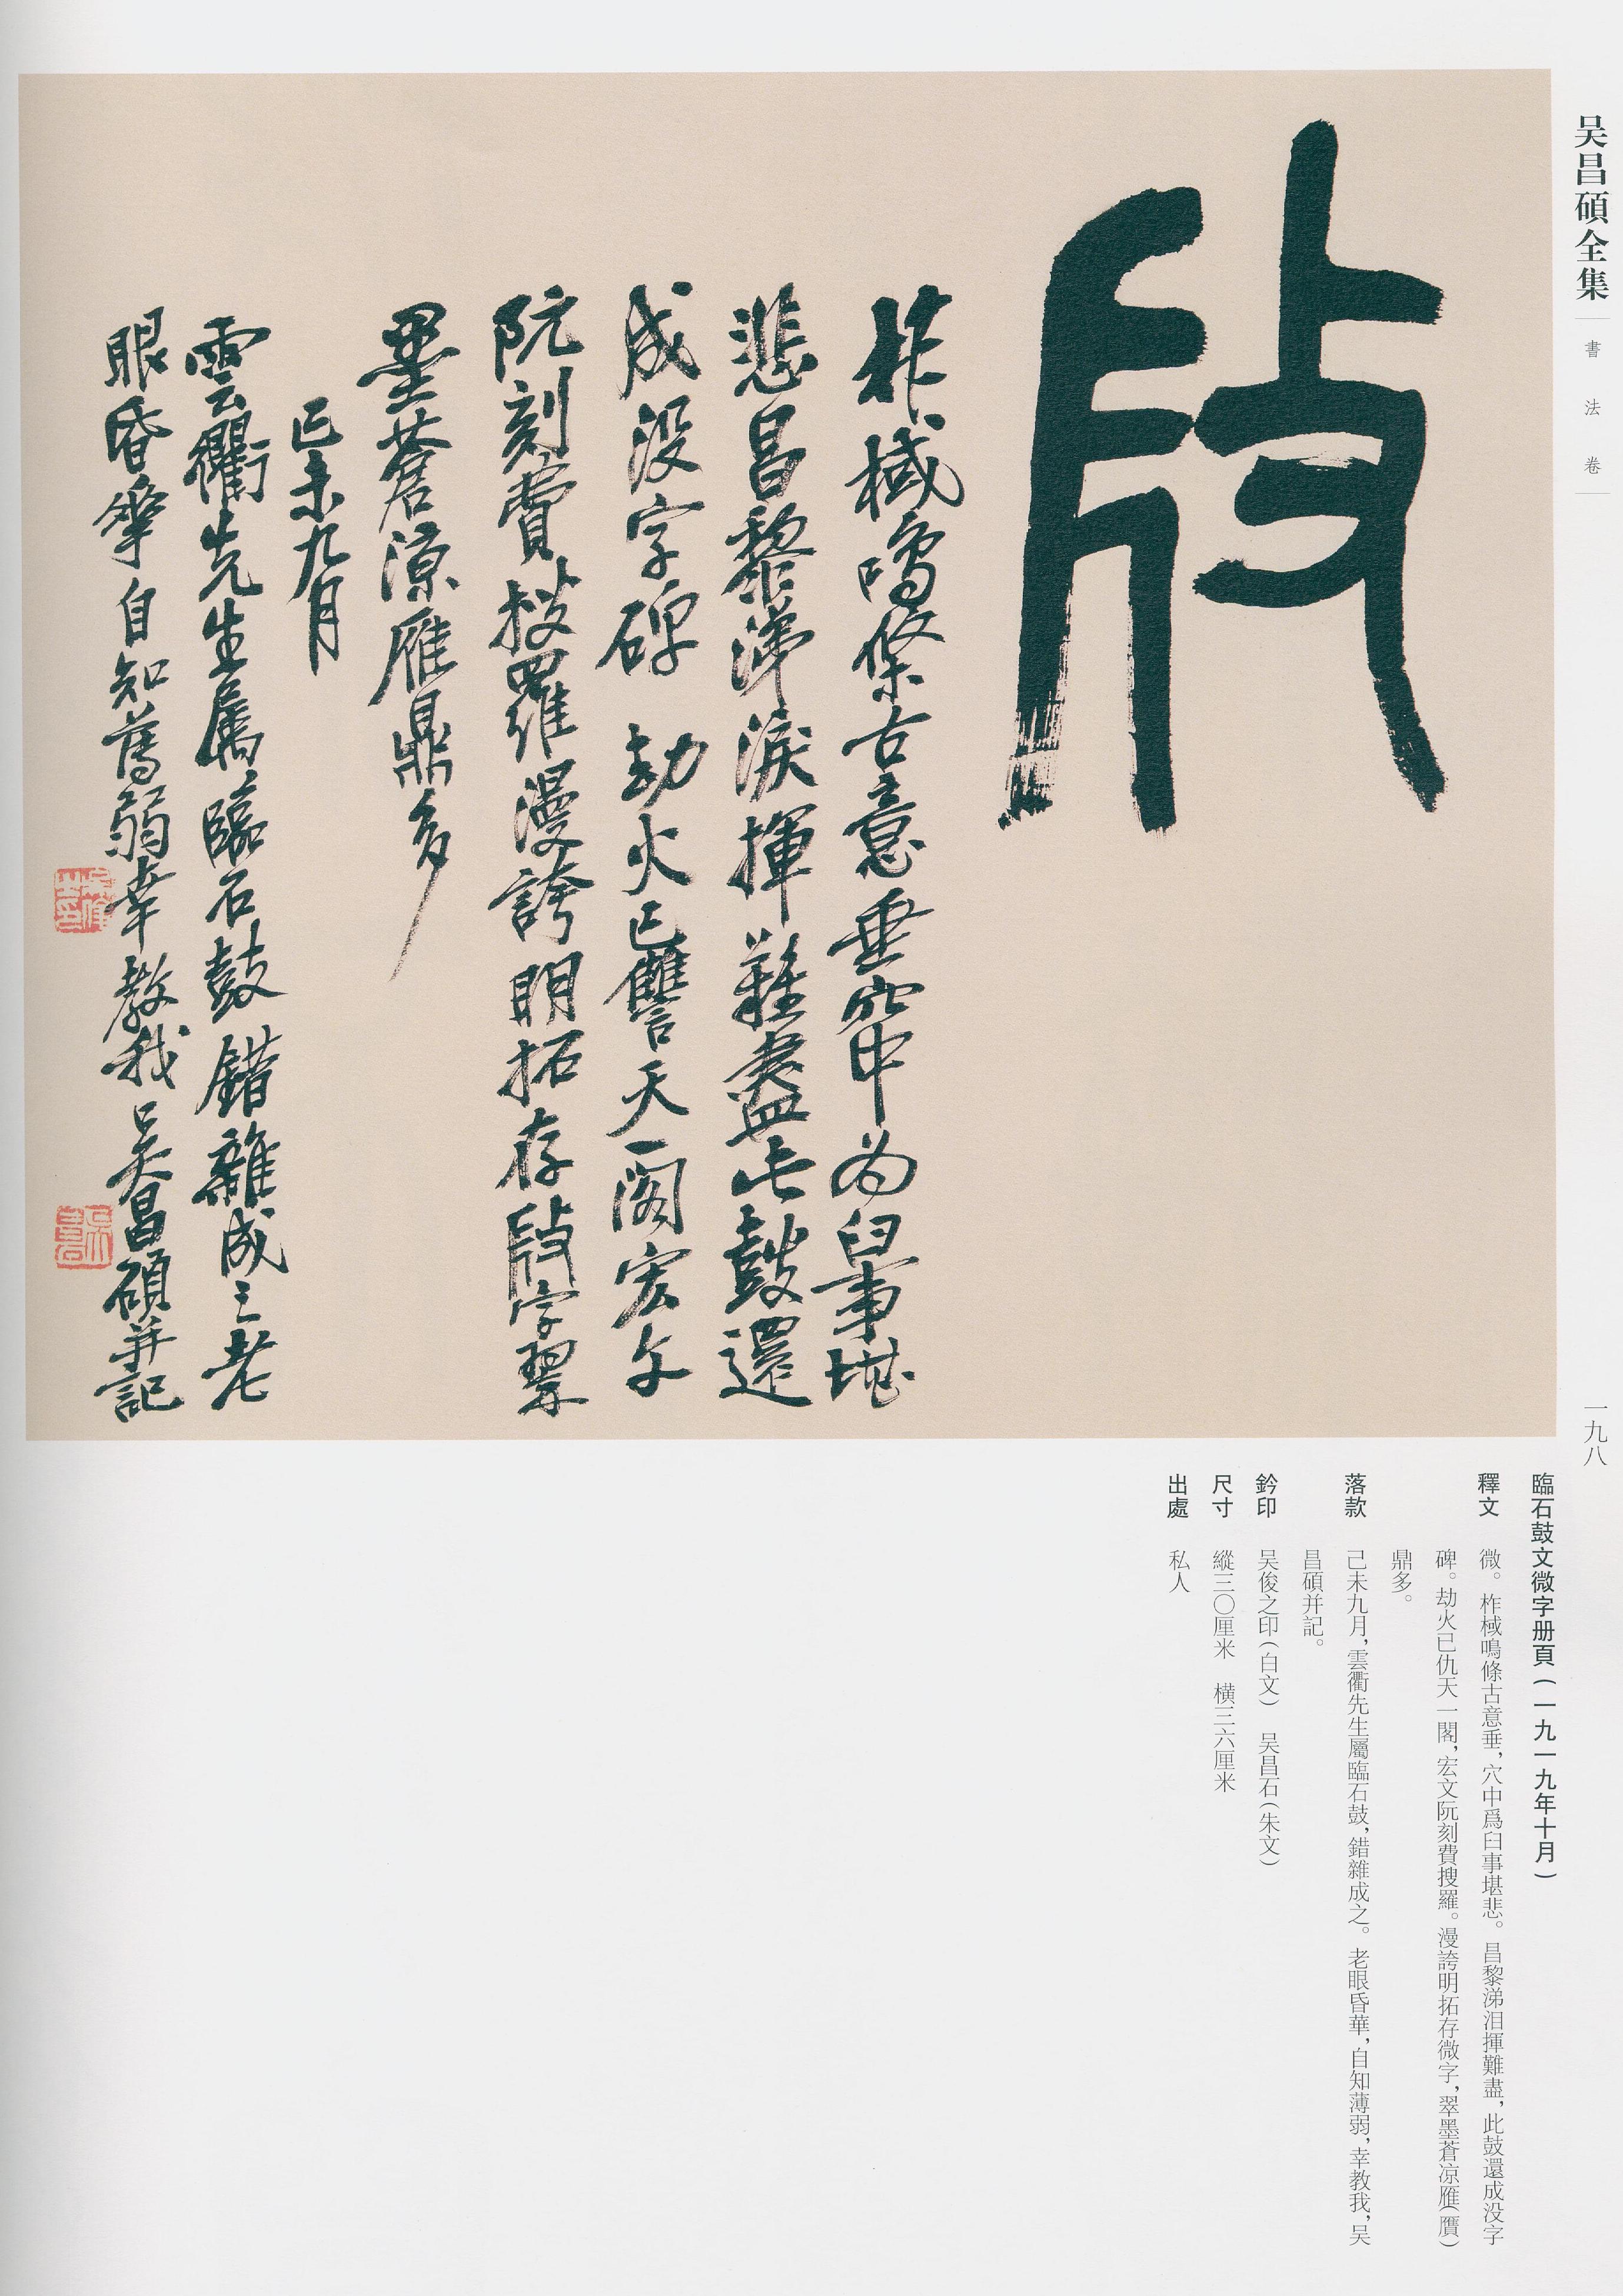 吴昌碩全集
書法卷
一九八
柞棫鳴條古意垂穴中为臼事堪
悲昌黎涕淚揮難盡此鼓還
成没字碑劫火已讐天一阁宏文
阮刻費搜羅漫誇明拓存字翠
墨蒼涼雁鼎多
己未九月
雲衢先生屬臨石鼓錯雜成之老
眼昏華自知薄弱幸教我吴昌碩并記
臨石鼓文微字册頁(一九一九年十月)
釋文 微。柞棫鳴條古意垂,穴中爲臼事堪悲。昌黎涕泪揮難盡,此鼓還成没字
碑。劫火已仇天一閣,宏文阮刻費搜羅。漫誇明拓存微字,翠墨蒼凉雁(贋)
鼎多。
落款 己未九月,雲衢先生屬臨石鼓,錯雜成之。老眼昏華,自知薄弱,幸教我,吴
昌碩并記。
鈐印 吴俊之印(白文) 吴昌石(朱文)
尺寸 縱三〇厘米 横三六厘米
出處 私人